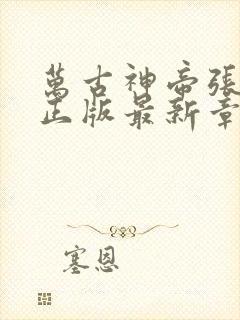 萬古神帝張
正版最新章
塞恩